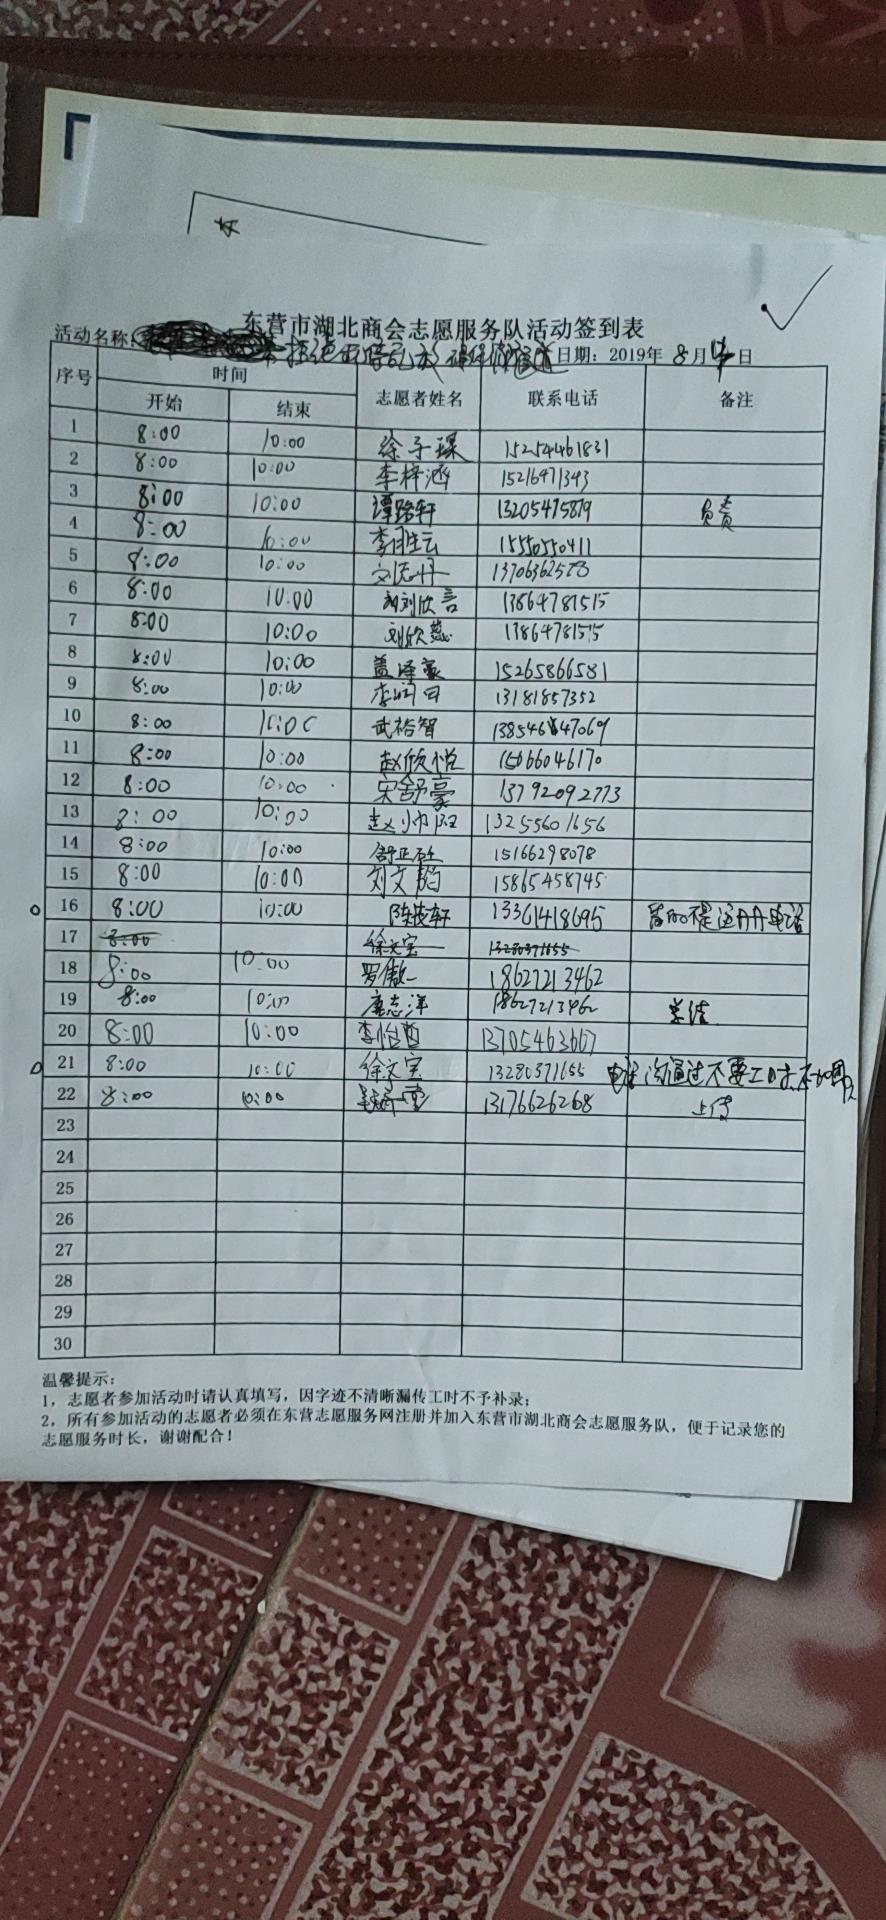 东营市湖北商会志愿服务队活动签到表
活动名称: 日期: 2019年 8月 日
序号 时间 志愿者姓名 联系电话 备注
开始 结束
1 8:00 10:00 徐子琛 15254461831
2 8:00 10:00 李梓涵 15216471343
3 8:00 10:00 谭路轩 13205475879 负责
4 8:00 10:00 15550550411
5 8:00 10:00
6 8:00 10:00 刘欣言 13864781515
7 8:00 10:00 刘欣燕 13864781515
8 8:00 10:00 盖泽豪 15265866581
9 8:00 10:00 13181857352
10 8:00 10:00 武裕智
11 8:00 10:00 赵欣悦 15066046170
12 8:00 10:00 宋舒豪 13792092773
13 8:00 10:00 赵帅 13255601656
14 8:00 10:00 15166298078
15 8:00 10:00 刘文韵 15865458745
16 8:00 10:00 13361418695 电话
17 8:00 徐文宝 13280371655
18 8:00 10:00 罗傲 18627213462
19 8:00 10:00 唐志洋 18627213462 总结
20 8:00 10:00 李怡哲 13705463667
21 8:00 10:00 徐文宝 13280371655 电话沟通过不要工时未加团队
22 8:00 10:00 13176626268 上传
23
24
25
26
27
28
29
30
温馨提示:
1，志愿者参加活动时请认真填写，因字迹不清晰漏传工时不予补录;
2，所有参加活动的志愿者必须在东营志愿服务网注册并加入东营市湖北商会志愿服务队，便于记录您的
志愿服务时长，谢谢配合!